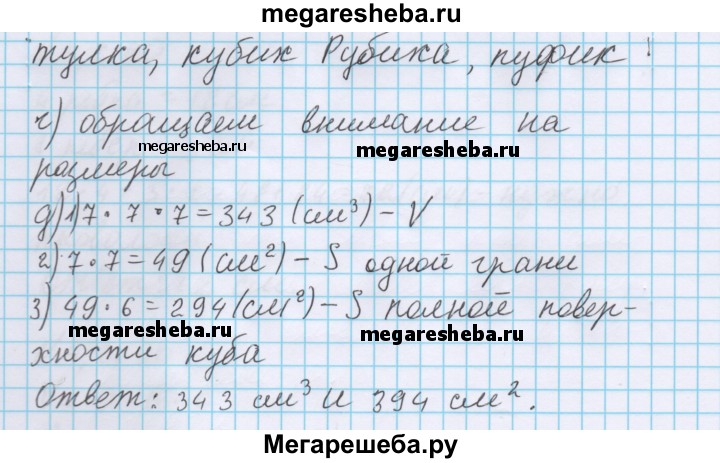 megaresheba.ru
тулка, кубик Рубика, пуфик
г) обращаем внимание на
megaresheba.ru
megaresheba.ru
размеры
д) 1) 7 · 7 · 7 = 343 (см³) – V
2) 7 · 7 = 49 (см²) – S одной грани
3) 49 · 6 = 294 (см²) – S полной повер-
megaresheba.ru
megaresheba.ru
хности куба
Ответ: 343 см³ и 394 см².
Мегарешеба.ру